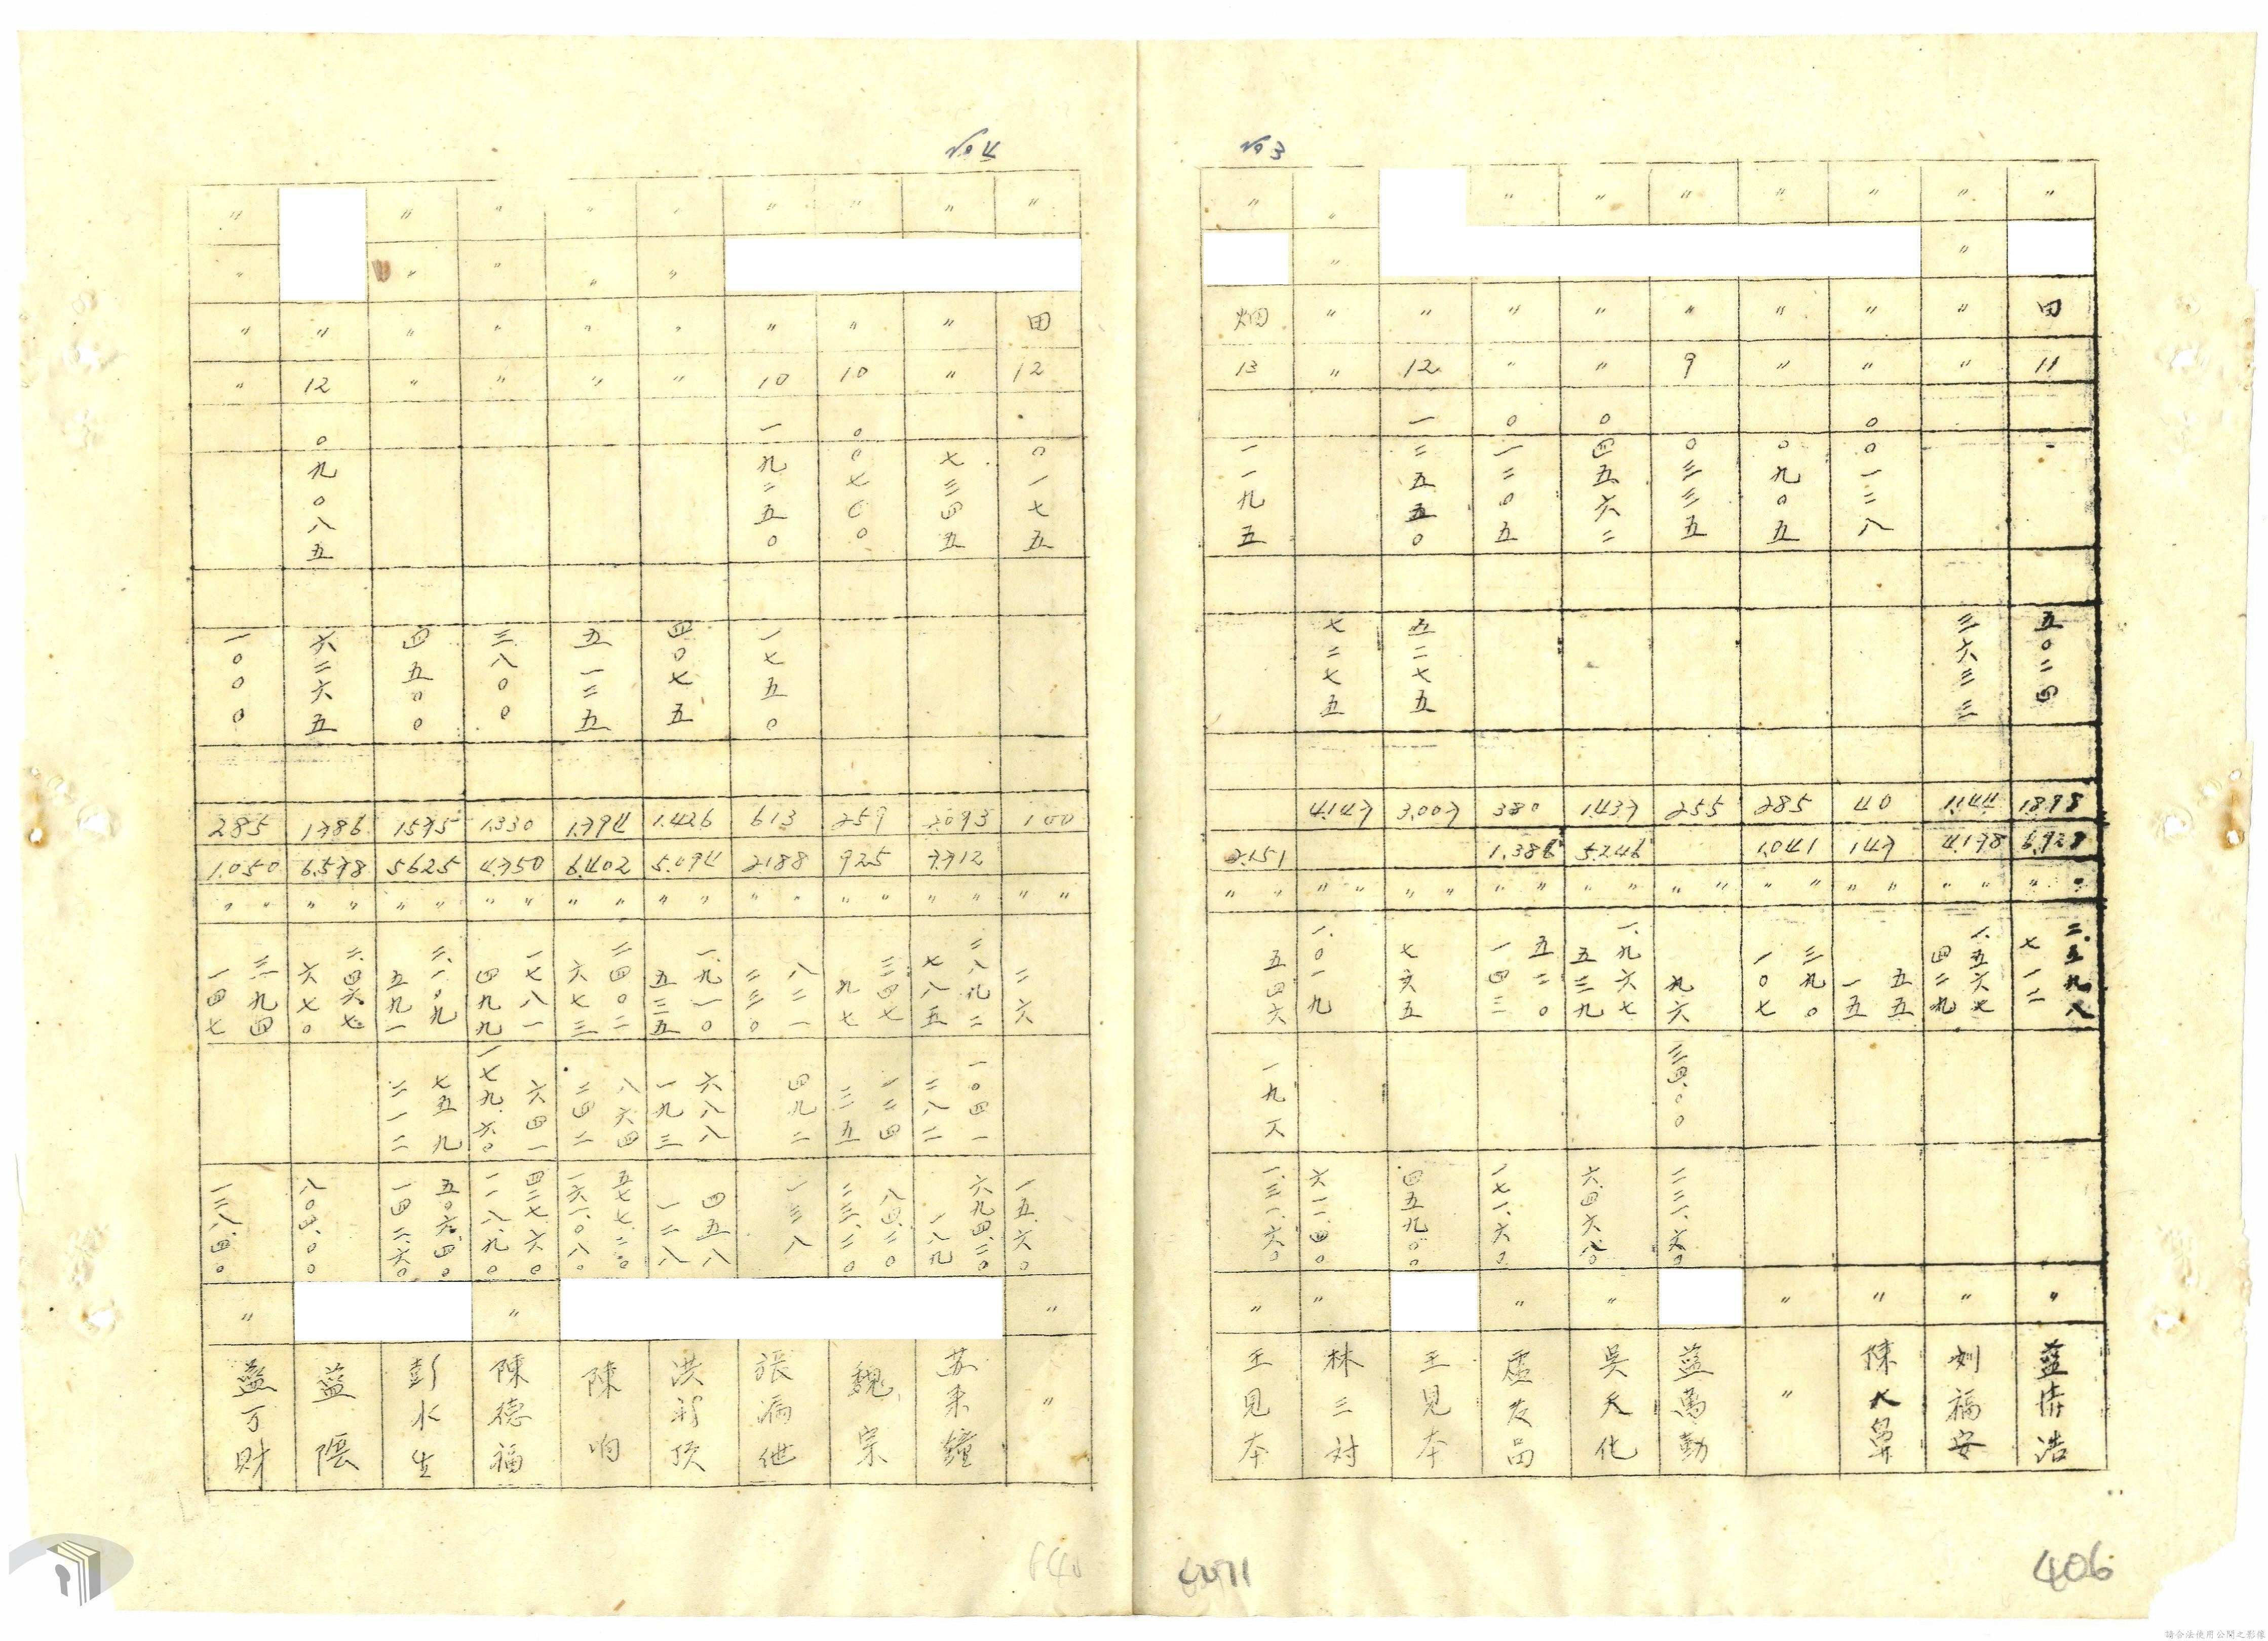 No 3
〃 田 11 五〇二四 1.898 6.928 〃 〃 二.五九八 七一二 〃 藍清浩
〃 〃 〃 〃 三六三三 1.144 4.178 〃 〃 一.五六七 四二九 〃 刘福安
〃 〃 〃 〇〇一二八 40 147 〃 〃 五五 一五 〃 陳大鼻
〃 〃 〃 〇九〇五 285 1,041 〃 〃 三九〇 一〇七 〃 〃
〃 〃 9 〇三三五 255 〃 〃 九六 三四.〇〇 二二一.六〇 藍萬勤
〃 〃 〃 〇四五六二 1.437 5.246 〃 〃 一.九六七 五三九 六.四六.八〇 〃 吳天化
〃 〃 〃 〇一二〇五 380 1.386 〃 〃 五二〇 一四三 一七一.六〇 〃 盧友品
〃 12 一二五五〇 五二七五 3,007 〃 〃 七六五 四五九.〇〇 王見本
〃 〃 〃 〃 七二七五 4.147 〃 〃 一.〇一九 六一一.四〇 〃 林三対
〃 畑 13 一一九五 2.151 〃 〃 五四六 一九八 一.三一.六〇 〃 王見本
No 4
〃 田 12 〇一七五 100 〃 〃 二六 一五.六〇 〃 〃
〃 〃 〃 七三四五 2.093 7.712 〃 〃 二八九二 七八五 一〇四一 二八二 六九四.二〇 一八九 苏来鐘
〃 〃 10 〇〇七〇〇 259 925 〃 〃 三四七 九七 一二四 三五 八四.二〇 二三.二〇 魏宗
〃 〃 10 一九二五〇 一七五〇 613 2188 〃 〃 八二一 二三〇 四九二 一三八 張漏他
〃 〃 〃 〃 四〇七五 1.426 5.094 〃 〃 一.九一〇 五三五 六八八 一九三 四五八 一二八 洪新頂
〃 〃 〃 〃 五一二五 1.794 6.402 〃 〃 二四〇二 六七三 八六四 二四二 五七七.二〇 一六一.〇八 陳响
〃 〃 〃 〃 三八〇〇 1.330 4.750 〃 〃 一七八一 四九九 六四一 一七九.六〇 四二七.六〇 一一八.九〇 〃 陳德福
〃 〃 〃 〃 四五〇〇 1575 5625 〃 〃 二.一〇九 五九一 七五九 二一二 五〇六.四〇 一四二.六〇 彭水生
〃 12 〇九〇八五 六二六五 1.786 6.578 〃 〃 二.四六七 六七〇 八〇四.〇〇 藍陰
〃 〃 〃 〃 一〇〇〇 285 1.050 〃 〃 三九四 一四七 一三八.四〇 〃 藍万財
640
406
請合法使用公開之影像